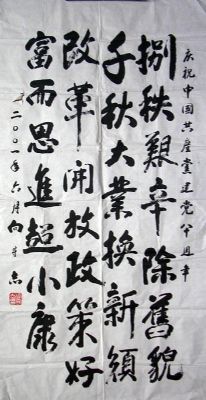 庆祝中国共產黨建党八十週年
捌秩艱辛除舊貌
千秋大業換新顏
改革開放政策好
富而思進超小康
二〇〇一年六月向